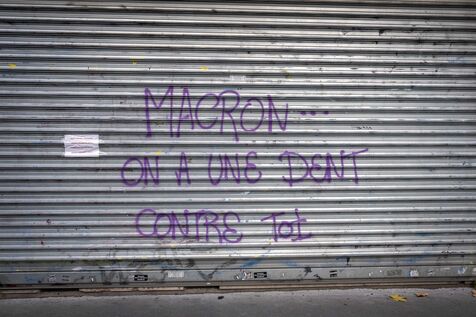 MACRON...
ON A UNE DENT
CONTRE TOI